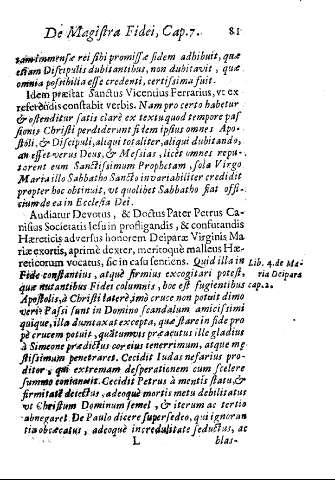 De Magistra Fidei, Cap. 7. 81
tam immensæ rei sibi promissæ fidem adhibuit, quæ
etiam Discipulis dubitantibus, non dubitavit, quæ
omnia possibilia esse credenti, certissima fuit.
Idem præstat Sanctus Vicenius Ferrarius, vt ex
referendis constabit verbis. Nam pro certo habetur
& ostenditur satis clarè ex textu, quod tempore pas
sionis Christi perdiderunt fidem ipsius omnes Apo-
stoli, & Discipuli, aliqui totaliter, aliqui dubitando,
an esset verus Deus, & Messias, licet omnes repu-
tarent eum Sanctissimum Prophetam, sola Virgo
Maria illo Sabbatho Sancto invariabiliter credidit
propter hoc obtinuit, vt quolibet Sabbatho fiat offi-
cium de ea in Ecclesia Dei.
Audiatur Devotus, & Doctus Pater Petrus Ca-
nisius Societatis Iesu in profligandis, & confutandis
Hæreticis adversus honorem Deiparæ Virginis Ma
riæ exortis, aprimè dexter, meritoque malleus Hæ-
reticorum vocatus, sic in casu sentiens. Quid illa in
Fide constantius, atque firmius excogitari potest,
quæ nutantibus Fidei columnis, hoc est fugientibus
Apostolis, à Christi latere, imò cruce non potuit dimo
veri? Passi sunt in Domino scandalum amicissimi
quique, illa dumtaxat excepta, quæ stare in fide pro
pè crucem potuit, quamvis præacutus ille gladius
à Simeone prædictus cor eius tenerrimum, atque mę
stissimum penetraret. Cecidit Iudas nefarius pro-
ditor, qui extremam desperationem cum scelere
summo coniunxit. Cecidit Petrus à mentis statu, &
firmitate detectus, adeoquè mortis metu debilitatus
vt Christum Dominum semel, & iterum ac tertio
abnegaret. De Paulo dicere supersedeo, qui ignoran
tia obcæcatus, adeoquè incredulitate seductus, ac
L blas-
Lib. 4. de Ma-
ria Deipara
cap. 2.